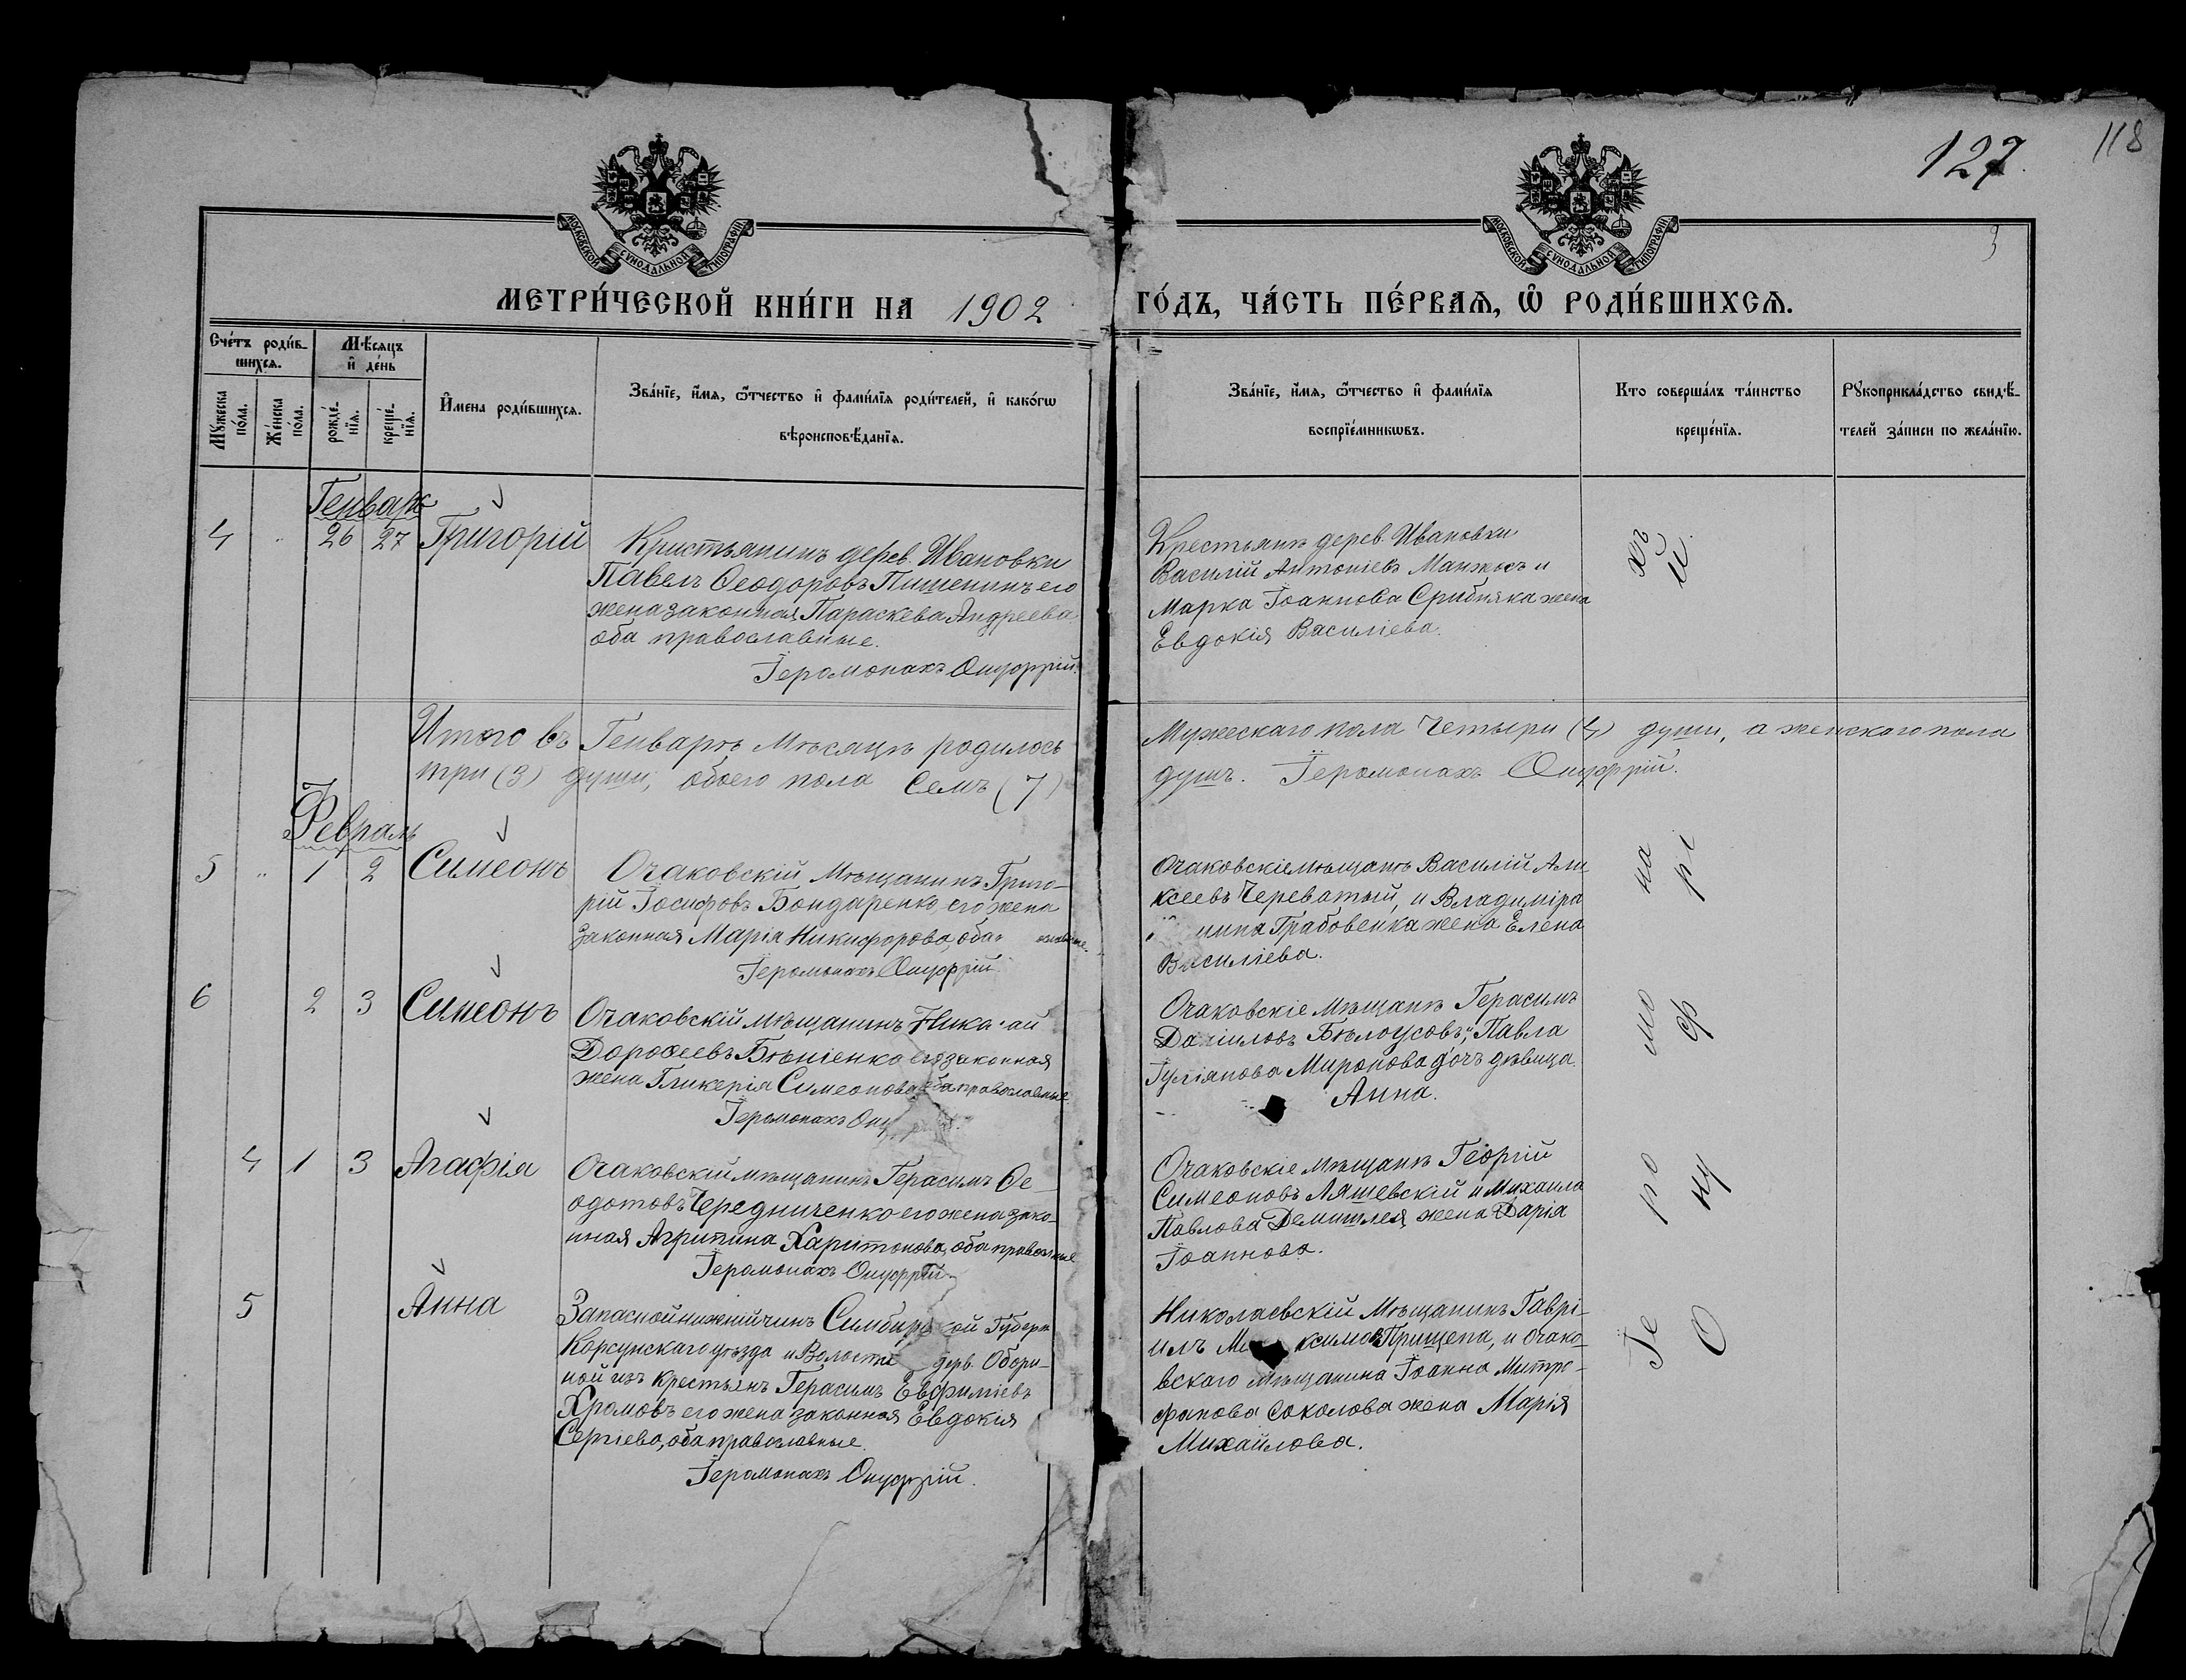 118
127
3
МОСКОВСКОЙ СУНОДАЛЬНОЙ ТИПОГРАФІИ
МОСКОВСКОЙ СУНОДАЛЬНОЙ ТИПОГРАФІИ
МЕТРИ́ЧЕСКОЙ КНИ́ГИ НА 1902 ГО́ДЪ, ЧА́СТЬ ПЕ́РВАѦ, Ѡ РОДИ́ВШИХСѦ.
Сче́тъ роди́в-
шихсѧ.
Мꙋжеска по́ла.
Же́нска по́ла.
Мѣ́сѧцъ
и де́нь
рожде́-
нїѧ.
креще́-
нїѧ.
И́мена роди́вшихсѧ.
Зва́нїе, и́мѧ, ѻ́тчество и фами́лїѧ роди́телей, и како́гѡ
вѣроисповѣ́данїѧ.
Зва́нїе, и́мѧ, ѻ́тчество и фами́лїѧ
воспрїе́мникѡвъ.
Кто соверша́лъ та́инство
креще́нїѧ.
Рꙋкоприкла́дство свидѣ́-
телей за́писи по жела́нїю.
Генварь
4 " 26 27 Григорій
Кристьянинъ дерев. Ивановки
Павелъ Ѳеодоровъ Пишенинъ его
жена законная Параскева Андреева
оба православные.
Іеромонахъ Онуфрій.
Крестьянъ дерев. Ивановки
Василій Антоніевъ Манжосъ и
Марка Іоаннова Срибняка жена
Евдокія Василіева.
хъ
й
Итого въ Генварѣ мѣсяцѣ родилось Мужескаго пола Четыри (4) души, а женскаго пола
три (3) души, обоего пола Семъ (7) душъ. Іеромонахъ Онуфрій.
Февраль
5 " 1 2 Симеонъ
Очаковскій Мѣщанинъ Григо-
рій Іосифовъ Бондаренко, его жена
законная Марія Никифорова, оба
Іеромонахъ Онуфрій
Очаковскіе мѣщанѣ Василій Але
ксеевъ Череватый, и Владиміра
нина Грабовенка жена Елена
Василіева.
на
рі
6 2 3 Симеонъ
Очаковскій мѣщанинъ Никалай
Дороѳеевъ Бѣліенко его законная
жена Гликерія Симеонова, оба православные
Іеромонахъ Ону
Очаковскіе мѣщанѣ Герасимъ
Даніиловъ Бѣлоусовъ, Павла
Іуліянова Миронова дочъ дѣвица
Анна.
мо
ф
4 1 3 Агафія
Очаковскій мѣщанинъ Герасимъ Ѳе-
одотовъ Чередниченко его жена зако-
нная Агрипина Харитонова, оба православные
Іеромонахъ Онуфрій
Очаковскіе мѣщанѣ Георгій
Симеоновъ Ляшевскій и Михаила
Павлова Демишлея жена Дарія
Іоаннова.
ро
ну
5 Анна
Запасной нижній чинъ Симбирской Губерн
Корсунскаго уѣзда и Волости дерв. Обори-
ной изъ крестьянъ Герасимъ Евфиміевъ
Хромовъ его жена законная Евдокія
Сергіева, оба православные.
Іеромонахъ Онуфрій.
Николаевскій Мѣщанинъ Гаврі-
илъ М ксимовъ Прищепа, и Очако-
вскаго мѣщанина Іоанна Митро-
фанова Соколова жена Марія
Михайлова.
Іе
О